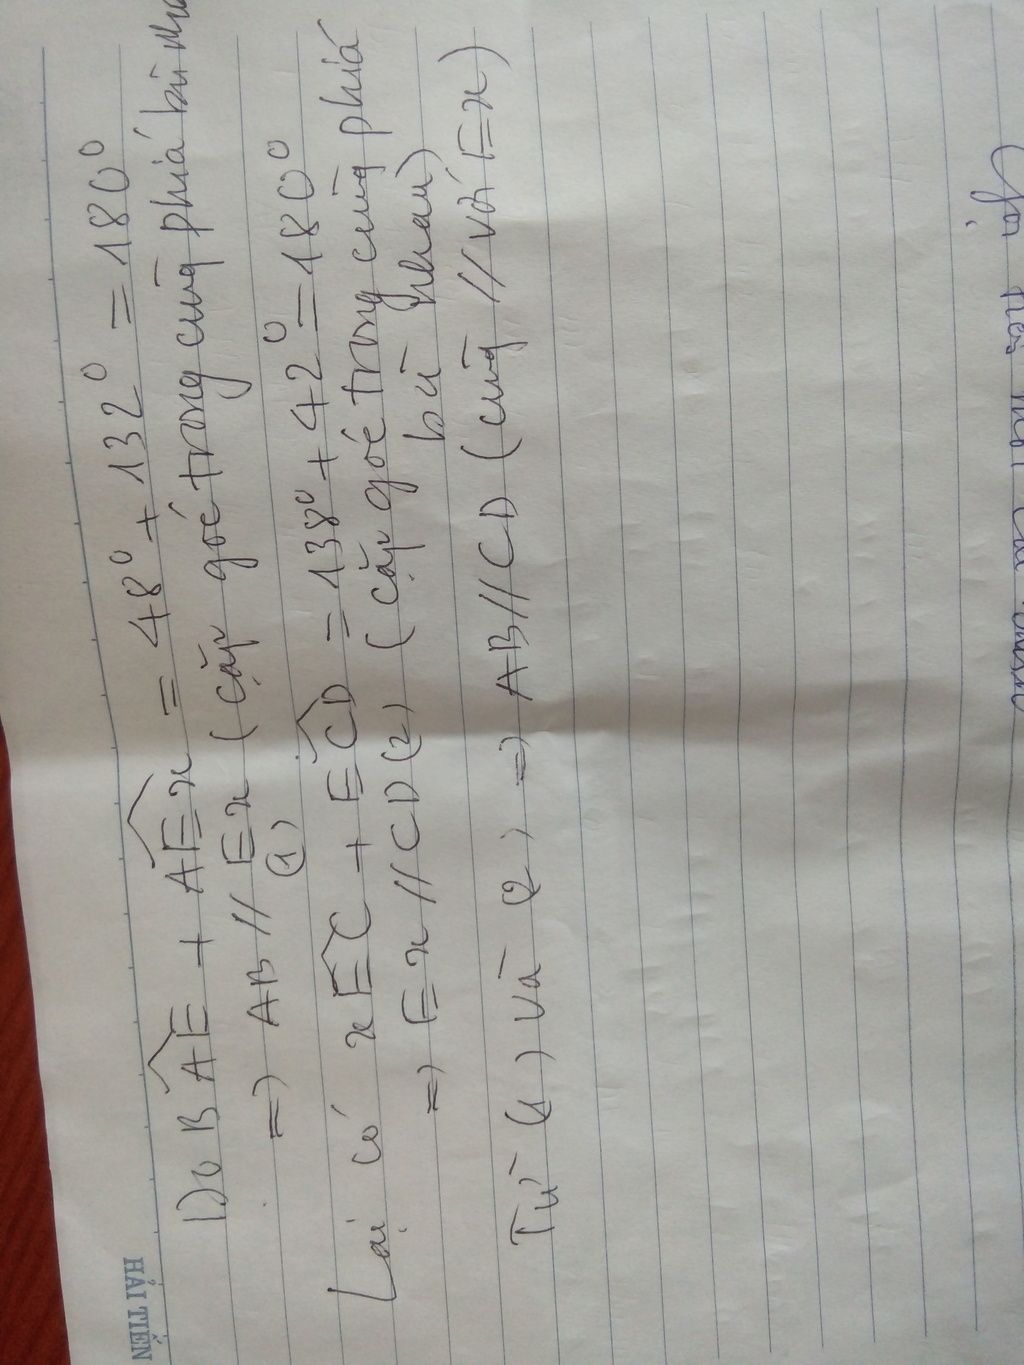 HẢI TIẾN
Do BÂE + AÊx = 48⁰ + 132⁰ = 180⁰
=> AB // Ex (cặp góc trong cùng phía bù
(1)
Lại có xÊC + EĈD = 138⁰ + 42⁰ = 180⁰
=> Ex // CD (2) (cặp góc trong cùng phía
bù nhau)
Từ (1) và (2) => AB // CD (cùng // với Ex)